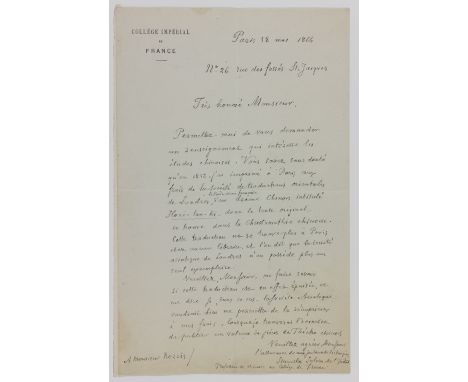 COLLÈGE IMPÉRIAL
DE
FRANCE
Paris 18 mai 1866
Nº 26 rue des fossés St. Jacques
Très honoré Monsieur,
Permettez-moi de vous demander
un renseignement qui intéresse les
études chinoises. Vous savez sans doute
qu'en 1832 j'ai imprimé à Paris aux
frais de la Société de traductions orientales
de Londres, un drame Chinois intitulé
Hoeï-lan-ki, dont le texte original
se trouve dans la Chrestomathie chinoise.
Cette traduction ne se trouve plus à Paris
chez aucun libraire, et l'on dit que la Société
asiatique de Londres n'en possède plus un
seul exemplaire.
Veuillez, Monsieur, me faire savoir
si cette traduction est en effet épuisée, et
me dire si, dans ce cas, la Société Asiatique
voudrait bien me permettre de la réimprimer
à mes frais, lorsque je trouverai l'occasion
de publier un volume de pièces de Théâtre chinois
Veuillez agréer, Monsieur
Stanislas Julien de l'Institut
A Monsieur Norris /
Professeur de chinois au Collège de France